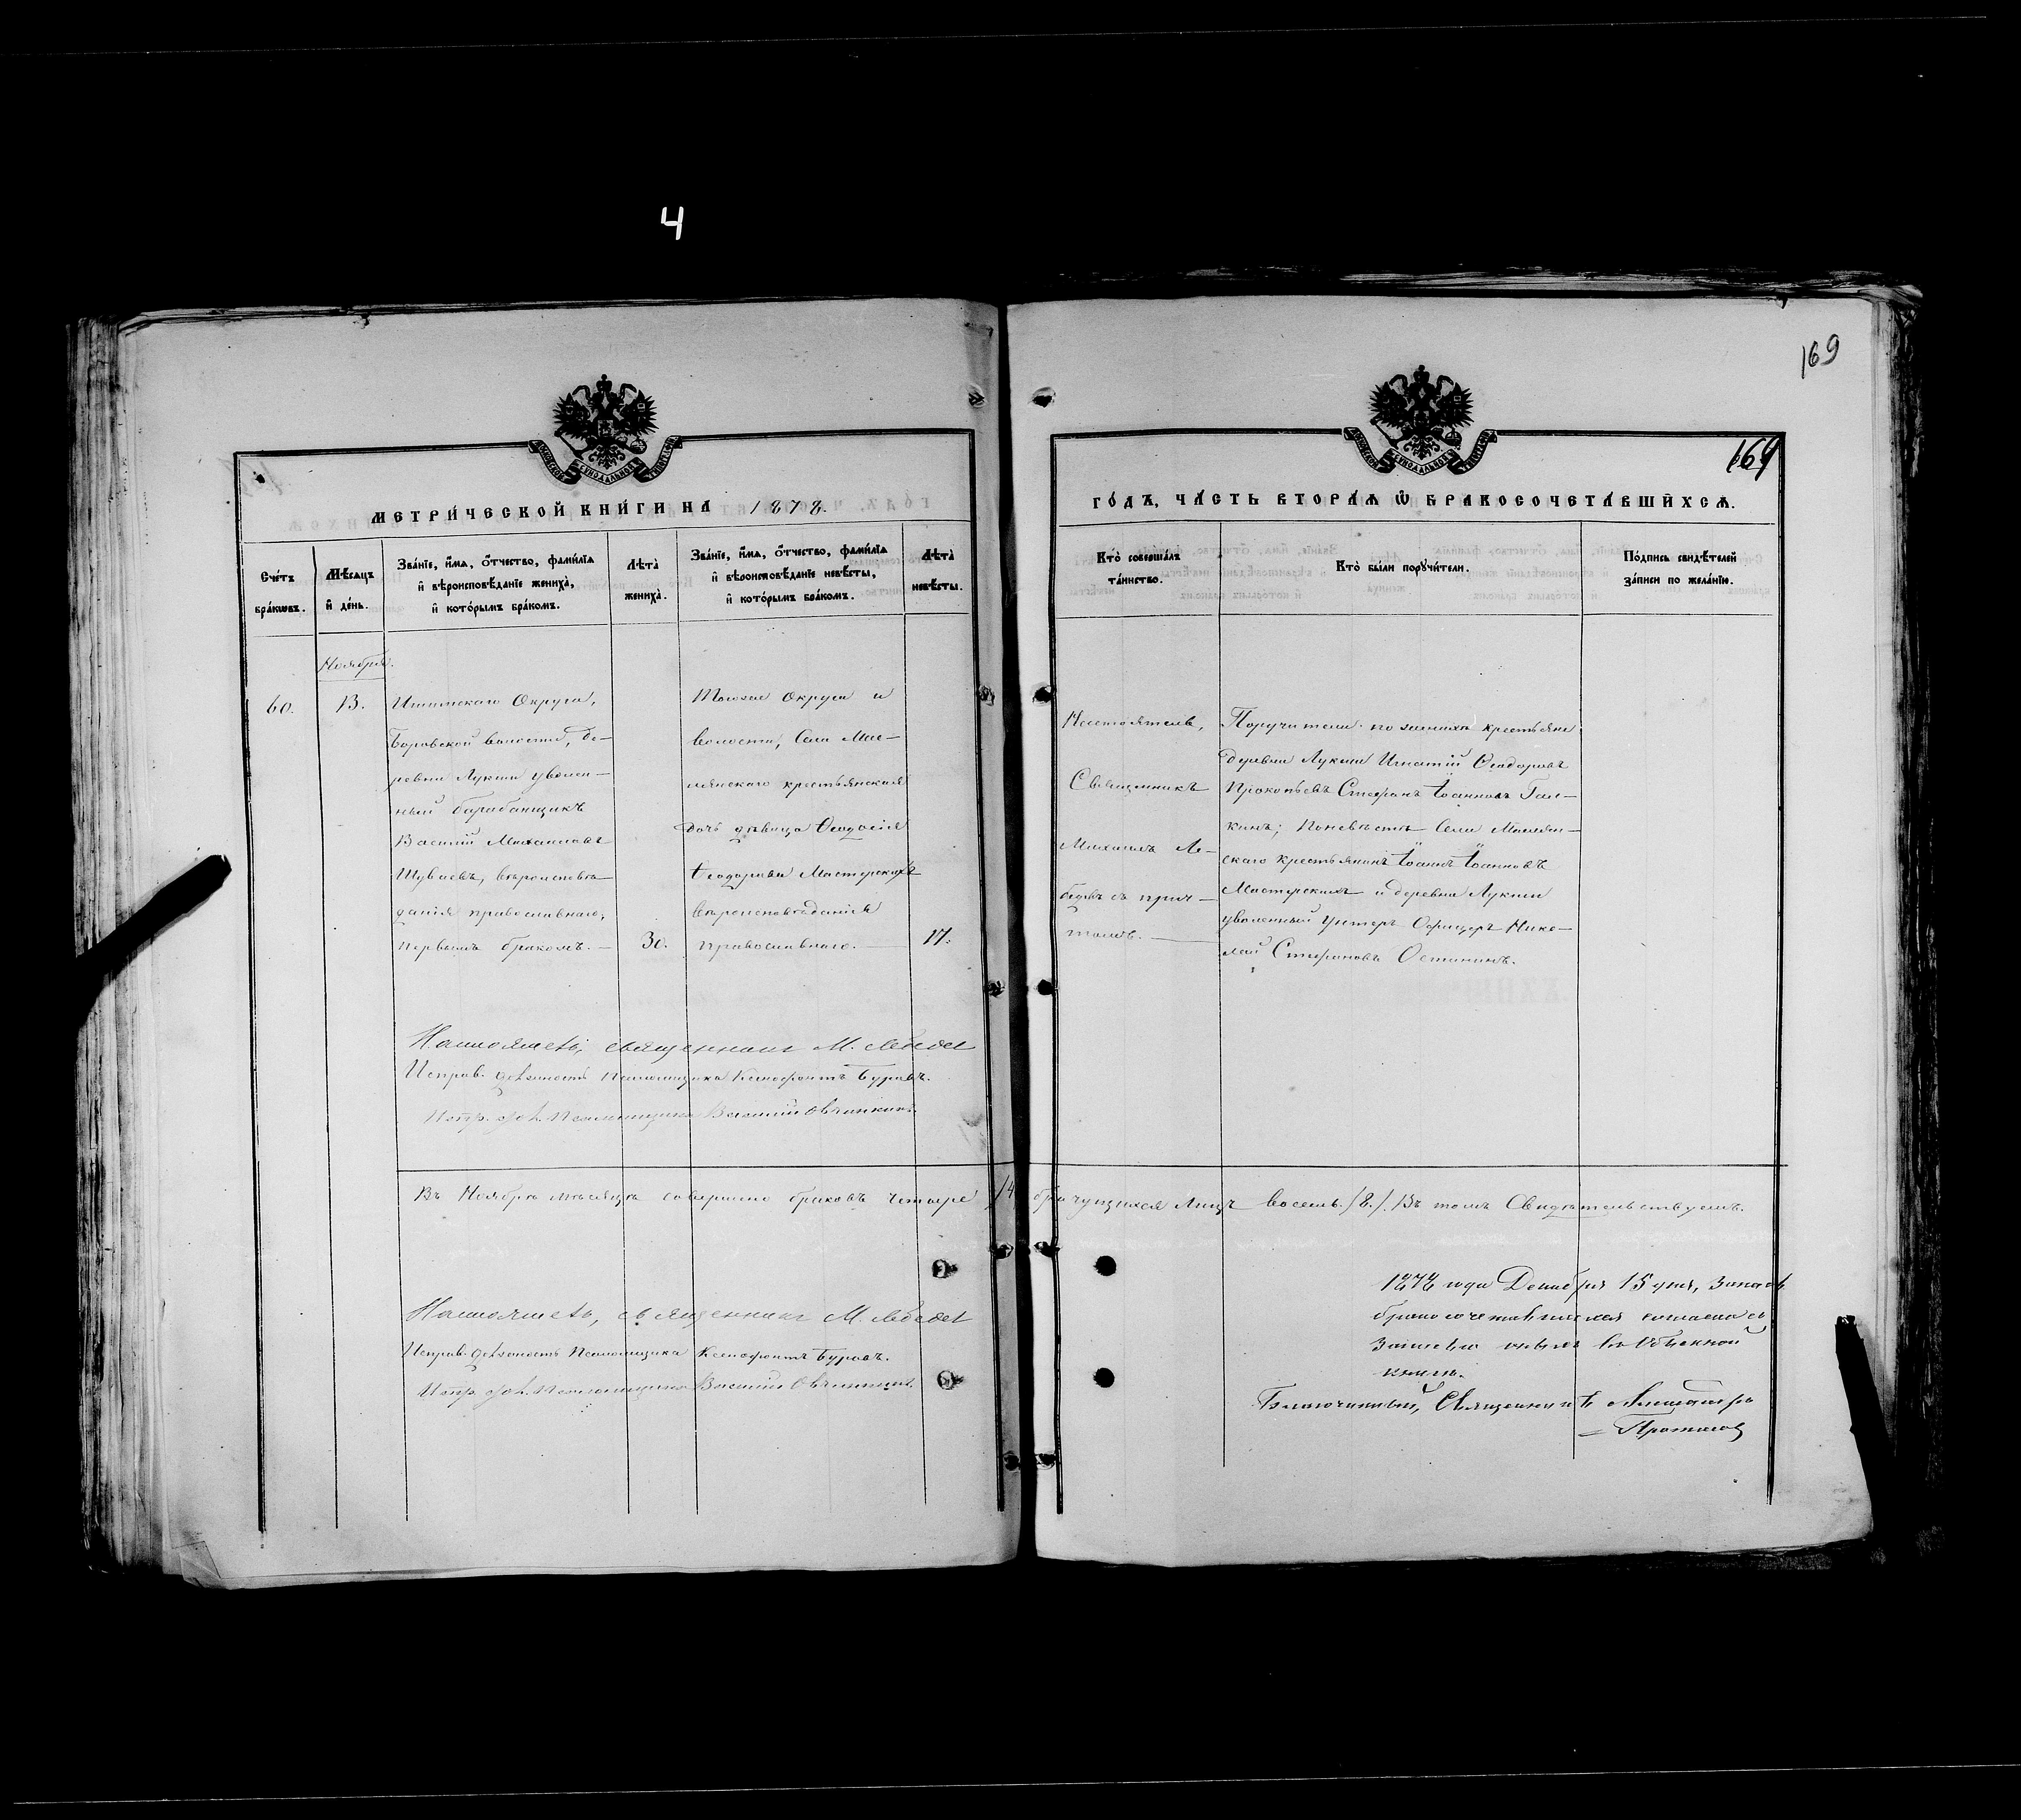 4
169
169
МЕТРИ́ЧЕСКОЙ КНИ́ГИ НА 1878.
ГО́ДЪ, ЧА́СТЬ ВТОРА́Я Ѡ҆ БРАКОСОЧЕТА́ВШИХСЯ.
Сче́тъ бра́кѡвъ.
Мѣ́сяцъ и҆ де́нь.
Зва́нїе, и҆́мя, ѻ҆́тчество, фами́лїя
и҆ вѣроисповѣ́данїе жениха̀,
и҆ кото́рымъ бра́комъ.
Лѣта̀ жениха̀.
Зва́нїе, и҆́мя, ѻ҆́тчество, фами́лїя
и҆ вѣроисповѣ́данїе невѣ́сты,
и҆ кото́рымъ бра́комъ.
Лѣта̀ невѣ́сты.
Кто̀ соверша́лъ
та́инство.
Кто̀ бы́ли поручи́тели.
По́дпись свидѣ́телей
за́писи по жела́нїю.
Ноября.
60.
13.
Ишимскаго Округа,
Боровской волости, де-
ревни Лукина уволен-
ный барабанщикъ
Василий Михаиловъ
Шуваевъ, вѣроисповѣ-
данія православнаго,
первымъ бракомъ.—
30.
Тогоже Округа и
волости, Села Мас-
лянскаго крестьянская
дочь дѣвица Ѳеодосія
Ѳеодорова Мастерскихъ
вѣроисповѣданія
православнаго.
17.
Настоятель,
Священникъ
Михаилъ Ле-
бедевъ съ прич-
томъ.
Поручители по женихѣ крестьяне
деревни Лукиной Игнатій Ѳеодоровъ
Прокопьевъ Стефанъ Іоанновъ Гал-
кинъ; По невѣстѣ Села Маслян-
скаго крестьянинъ Іоаннъ Іоанновъ
Мастерскихъ и деревни Лукиной
уволенный Унтеръ Офицеръ Нико-
лай Стефановъ Останинъ.
Настоятель, священникъ М. Лебедев
Исправ. должность Псаломщика Ксенофонтъ Буровъ.
Испр. дол. Псаломщика Василій Овчинкинъ.
Въ Ноябрѣ мѣсяцѣ совершено браковъ четыре /4 брачущихся лицъ восемь /8./. Въ томъ Свидѣтельствуемъ.
Настоятель, священникъ М. Лебедев
Исправ. должность Псаломщика Ксенофонтъ Буровъ.
Испр. дол. Псаломщика Василій Овчинкинъ.
1878 года Декабря 15 дня, записи
бракосочетавшихся согласна съ
записью оныхъ въ Обыскной
книгѣ.
Благочинный, Священникъ Александръ